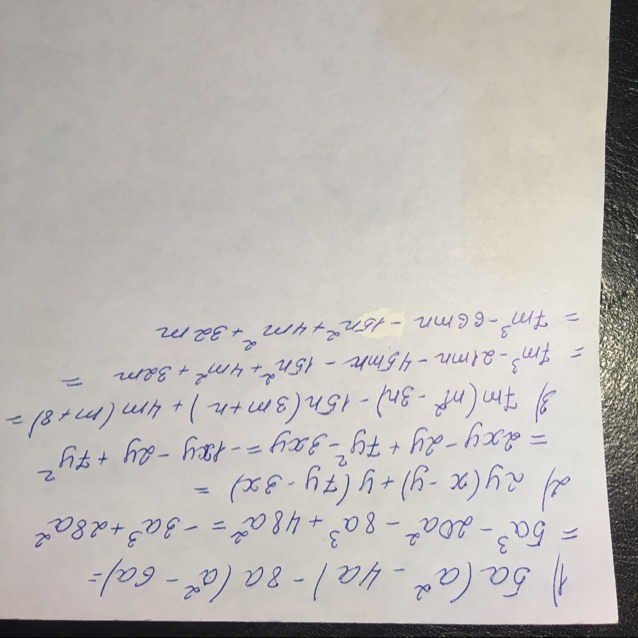 1) 5a(a² - 4a) - 8a(a² - 6a) =
= 5a³ - 20a² - 8a³ + 48a² = -3a³ + 28a²
2) 2y(x - y) + y(7y - 3x) =
= 2xy - 2y + 7y² - 3xy = -1xy - 2y + 7y²
3) 7m(m² - 3n) - 15n(3m + n) + 4m(m + 8) =
= 7m³ - 21mn - 45mn - 15n² + 4m² + 32m =
= 7m³ - 66mn - 15n² + 4m² + 32m